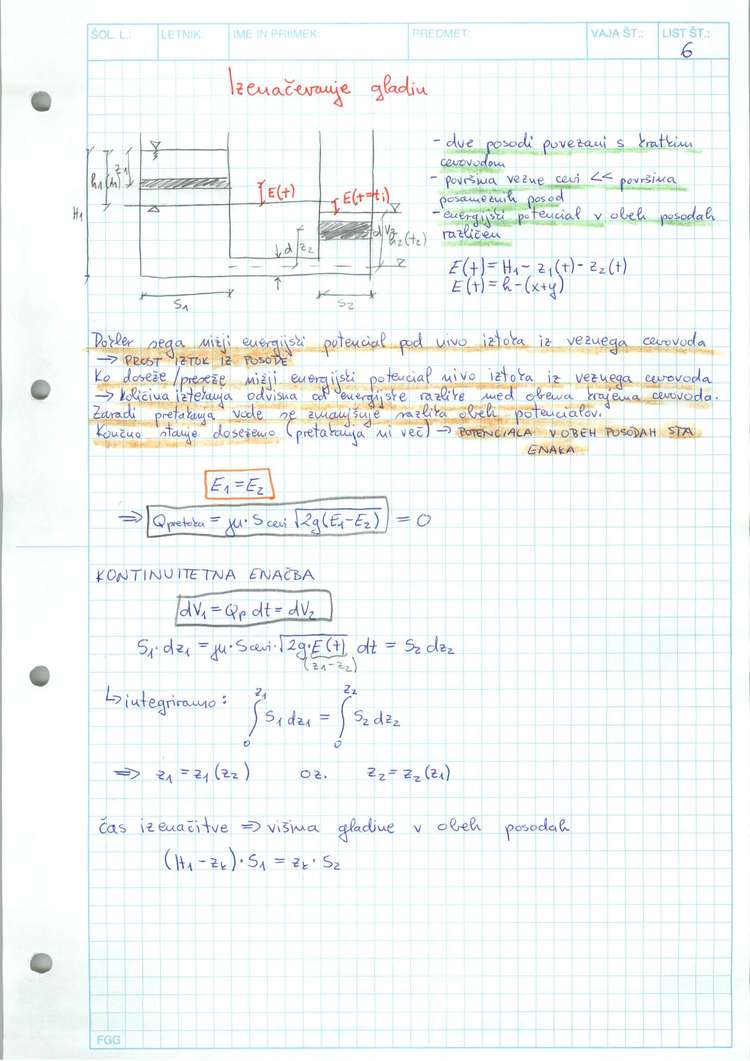 ŠOL. L.: LETNIK: IME IN PRIIMEK: PREDMET: VAJA ŠT.: LIST ŠT.:
6
Izenačevanje gladin
H₁
h₁(t₁)
z₁
E(t)
E(t=tᵢ)
d
z₂
dV₂
h₂(t₂)
S₁
S₂
- dve posodi povezani s kratkim
cevovodom
- površina vezne cevi << površina
posameznih posod
- energijski potencial v obeh posodah
različen
E(t) = H₁ - z₁(t) - z₂(t)
E(t) = h - (x+y)
Dokler sega nižji energijski potencial pod nivo iztoka iz veznega cevovoda
→ PROST IZTOK IZ POSODE
Ko doseže/preseže nižji energijski potencial nivo iztoka iz veznega cevovoda
→ količina iztekanja odvisna od energijske razlike med obema krajema cevovoda.
Zaradi pretakanja vode se zmanjšuje razlika obeh potencialov.
Končno stanje dosežemo (pretakanja ni več) → POTENCIALA V OBEH POSODAH STA
ENAKA
E₁ = E₂
⇒ Qpretoka = μ · Scevi √2g(E₁-E₂) = 0
KONTINUITETNA ENAČBA
dV₁ = Qp dt = dV₂
S₁ · dz₁ = μ · Scevi · √2g·E(t) dt = S₂ dz₂
(z₁-z₂)
↳ integriramo: ∫₀^z₁ S₁ dz₁ = ∫₀^z₂ S₂ dz₂
⇒ z₁ = z₁(z₂) oz. z₂ = z₂(z₁)
čas izenačitve ⇒ višina gladine v obeh posodah
(H₁ - zₖ) · S₁ = zₖ · S₂
FGG